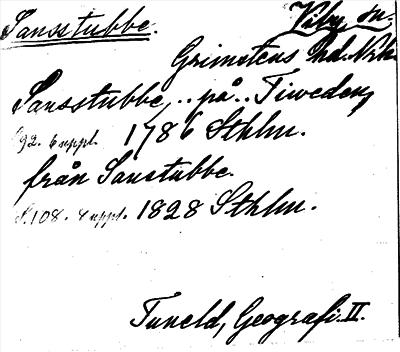 Sansstubbe. Viby sn.
Grimstens hd. Nrk.
Sansstubbe, .. på .. Tiweden,
S. 92. 6 uppl. 1786 Sthlm.
från Sanstubbe.
S. 108. 8 uppl. 1828 Sthlm.
Tuneld, Geografi. II.